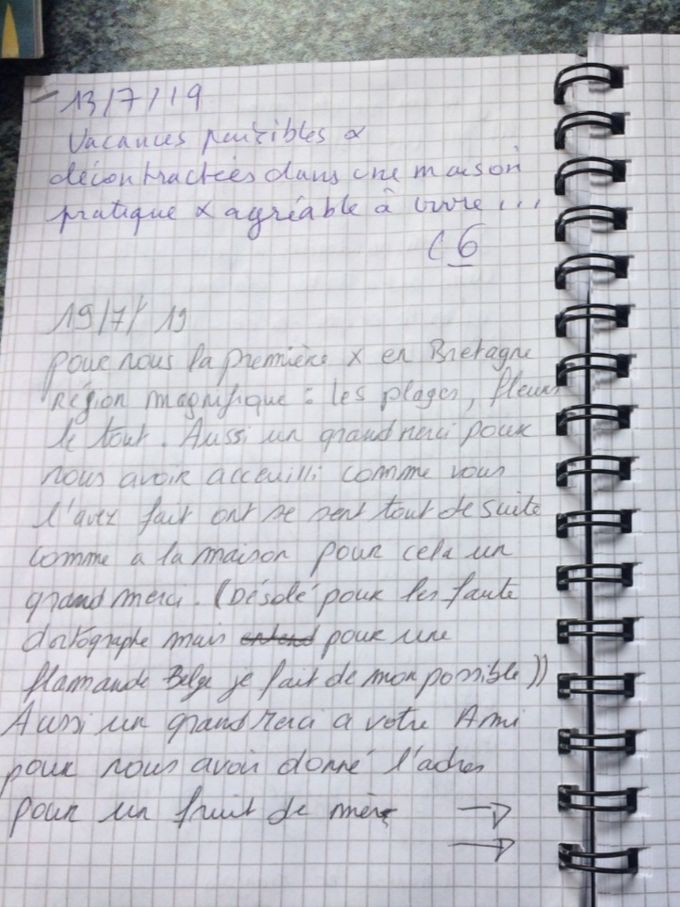 13/7/19
Vacances paisibles &
décontractées dans une maison
pratique & agréable à vivre...
(6
19/7/19
pour nous la première x en Bretagne
Région magnifique : les plages, fleurs
le tout. Aussi un grand merci pour
nous avoir acceuilli comme vous
l'avez fait ont se sent tout de suite
comme a la maison pour cela un
grand merci. (Désolé pour les faute
dortographe mais pour une
flamande Belge je fait de mon possible))
Aussi un grand merci a votre Ami
pour nous avoir donné l'adres
pour un fruit de mèr